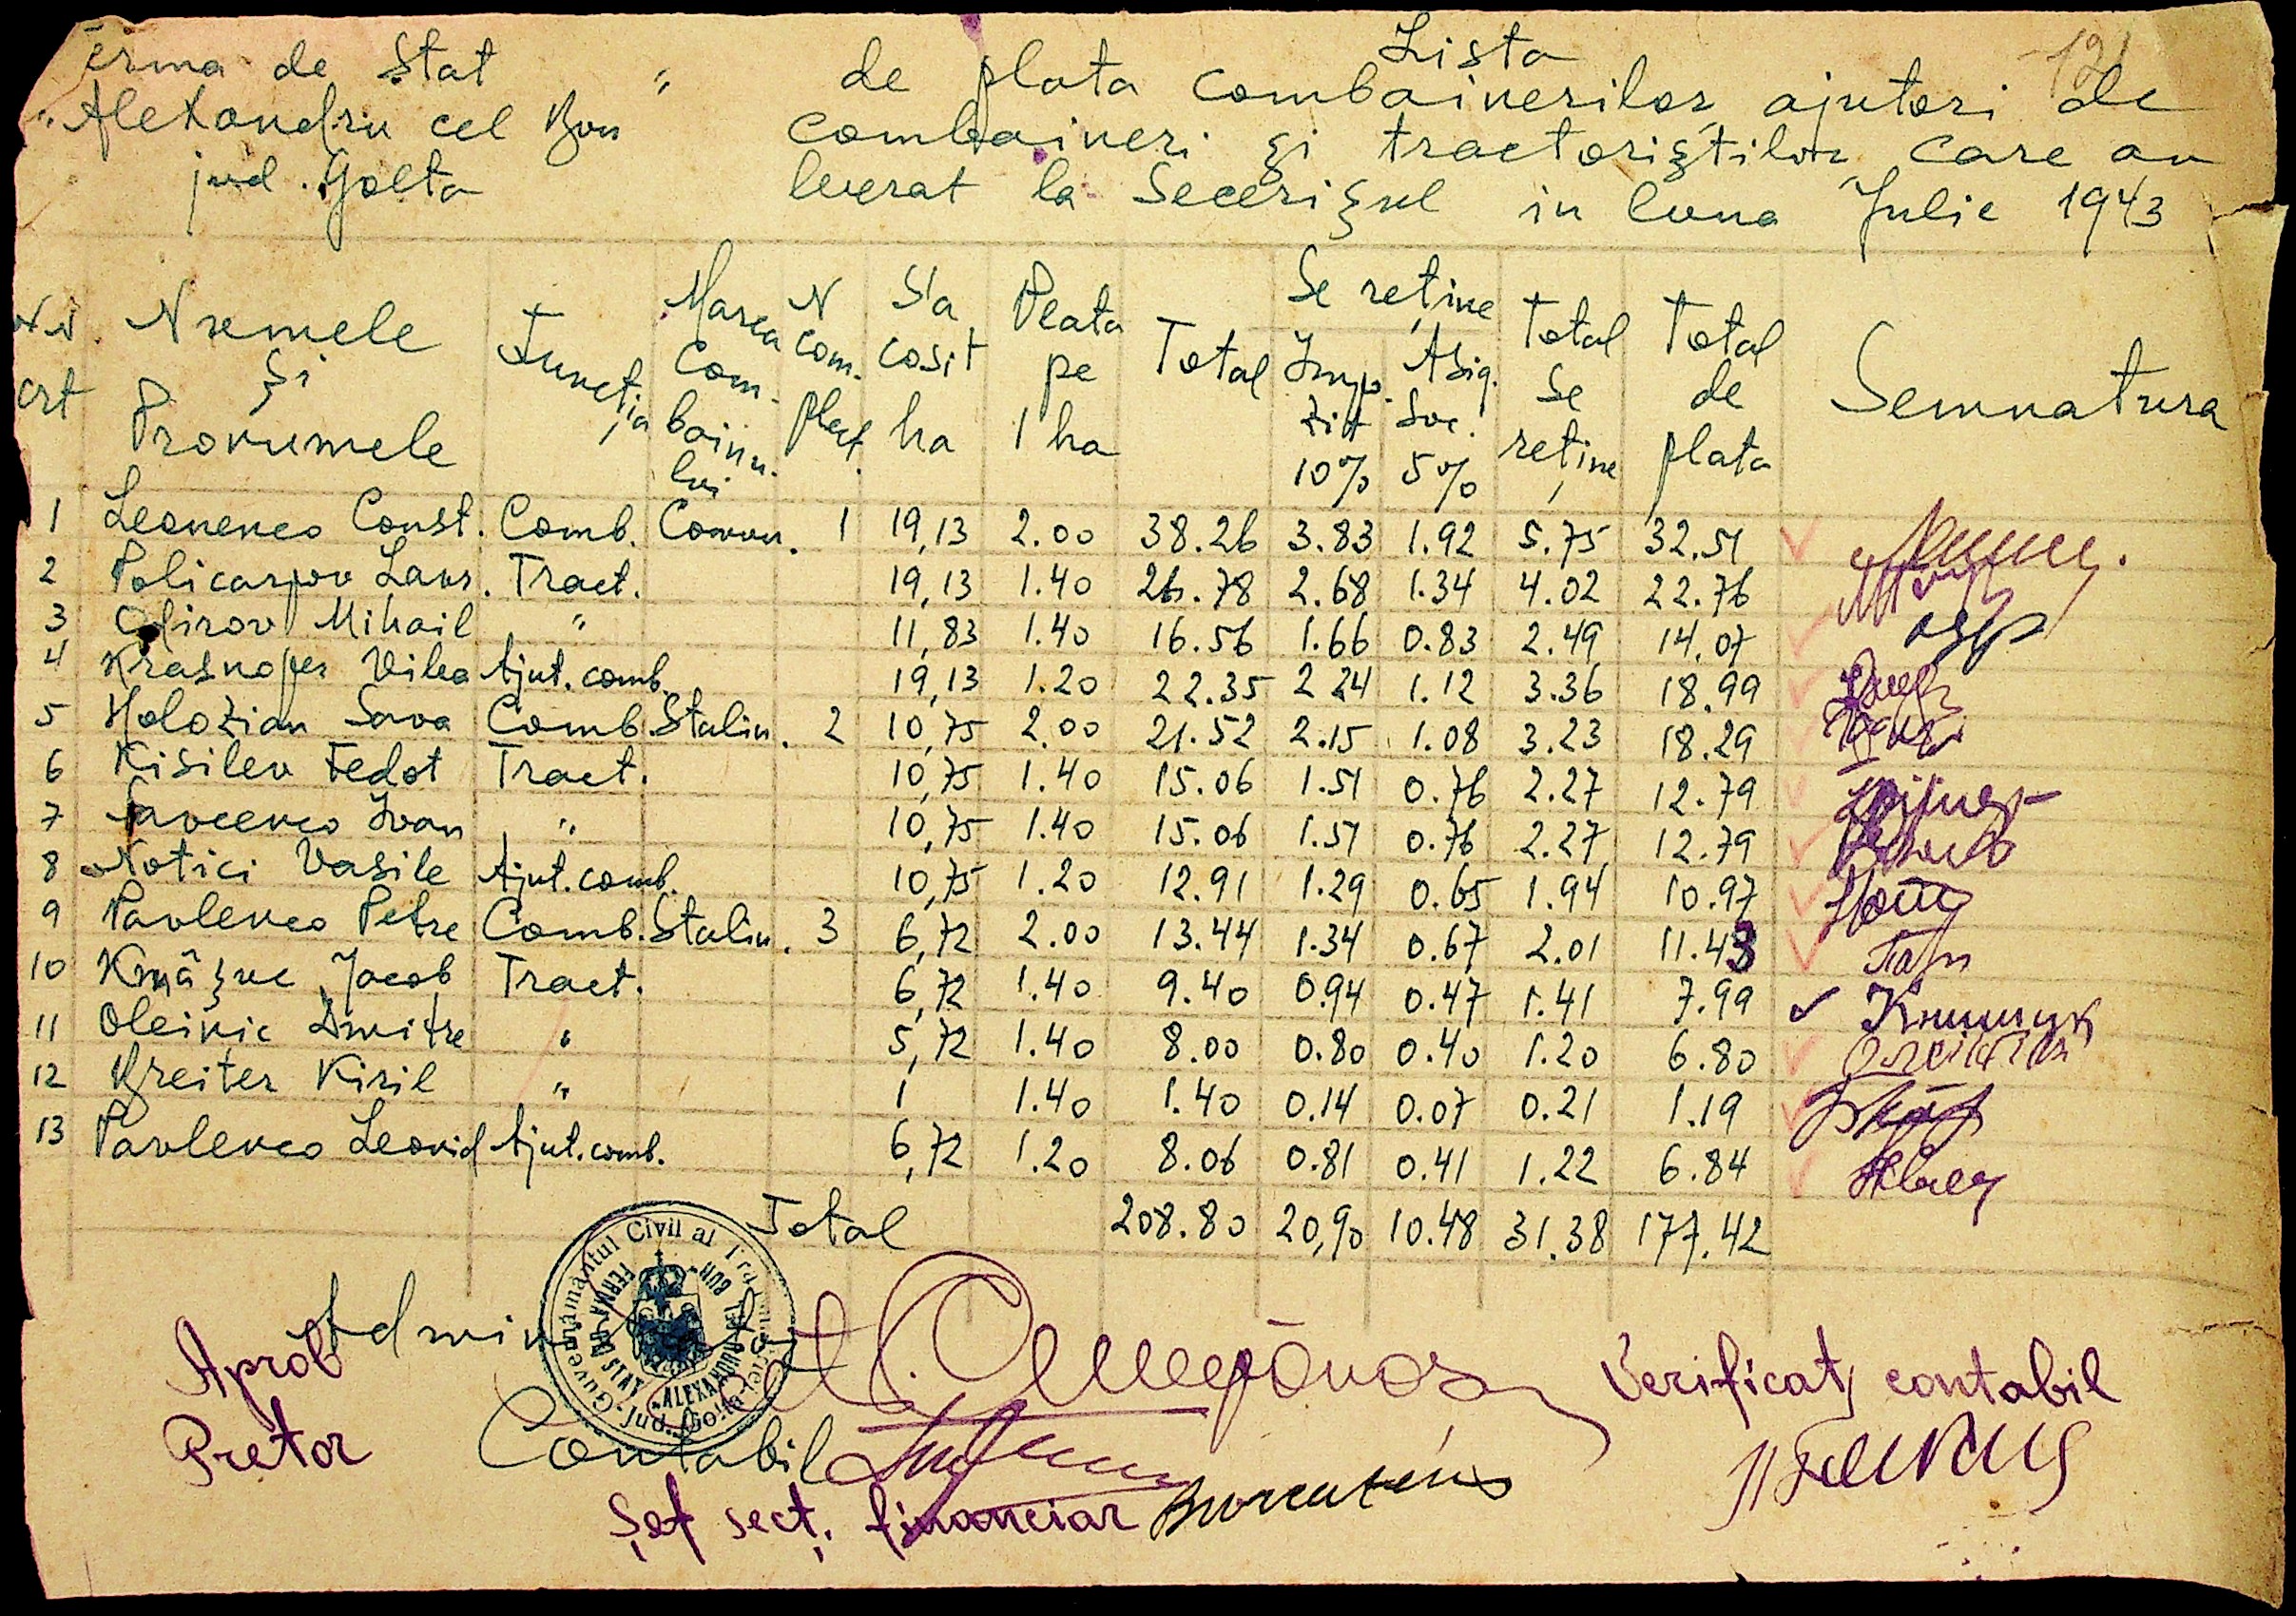 erma de Stat
"Alexandru cel Bun"
jud. Golta
121
Lista
de plata combainerilor, ajutori de
combaineri și tractoriștilor, care au
luerat la Secerișul in luna Julie 1943
Nr crt | Numele și Pronumele | Funcția | Marca Com-bainu-lui | N com-plect. | S'a cosit ha | Plata pe 1 ha | Total | Se reține Impo-zit 10% | Asig. Soc. 5% | Total se reține | Total de plata | Semnatura
1 Leonenco Const. Comb. Comun. 1 19,13 2.00 38.26 3.83 1.92 5.75 32.51
2 Policarpov Laur. Tract. 19,13 1.40 26.78 2.68 1.34 4.02 22.76
3 Ofirov Mihail " 11,83 1.40 16.56 1.66 0.83 2.49 14,07
4 Krasnoper Vilea Ajut. comb. 19,13 1.20 22.35 2 24 1.12 3.36 18.99
5 Holozian Sava Comb. Stalin. 2 10,75 2.00 21.52 2.15 1.08 3.23 18.29
6 Kisilev Fedot Tract. 10,75 1.40 15.06 1.51 0.76 2.27 12.79
7 Savcenco Ivan " 10,75 1.40 15.06 1.51 0.76 2.27 12.79
8 Notici Vasile Ajut. comb. 10,75 1.20 12.91 1.29 0.65 1.94 10.97
9 Pavlenco Petre Comb. Stalin. 3 6,72 2.00 13.44 1.34 0.67 2.01 11.43
10 Kmășuc Jacob Tract. 6,72 1.40 9.40 0.94 0.47 1.41 7.99
11 Oleinic Dmitre " 5,72 1.40 8.00 0.80 0.40 1.20 6.80
12 Breiter Kiril " 1 1.40 1.40 0.14 0.07 0.21 1.19
13 Pavlenco Leonid Ajut. comb. 6,72 1.20 8.06 0.81 0.41 1.22 6.84
Total 208.80 20,90 10.48 31.38 177.42
Guvernământul Civil al
FERMA DE STAT
Jud. Golta
Aprob
Pretor
Contabil
Șef secț. financiar
Verificat, contabil